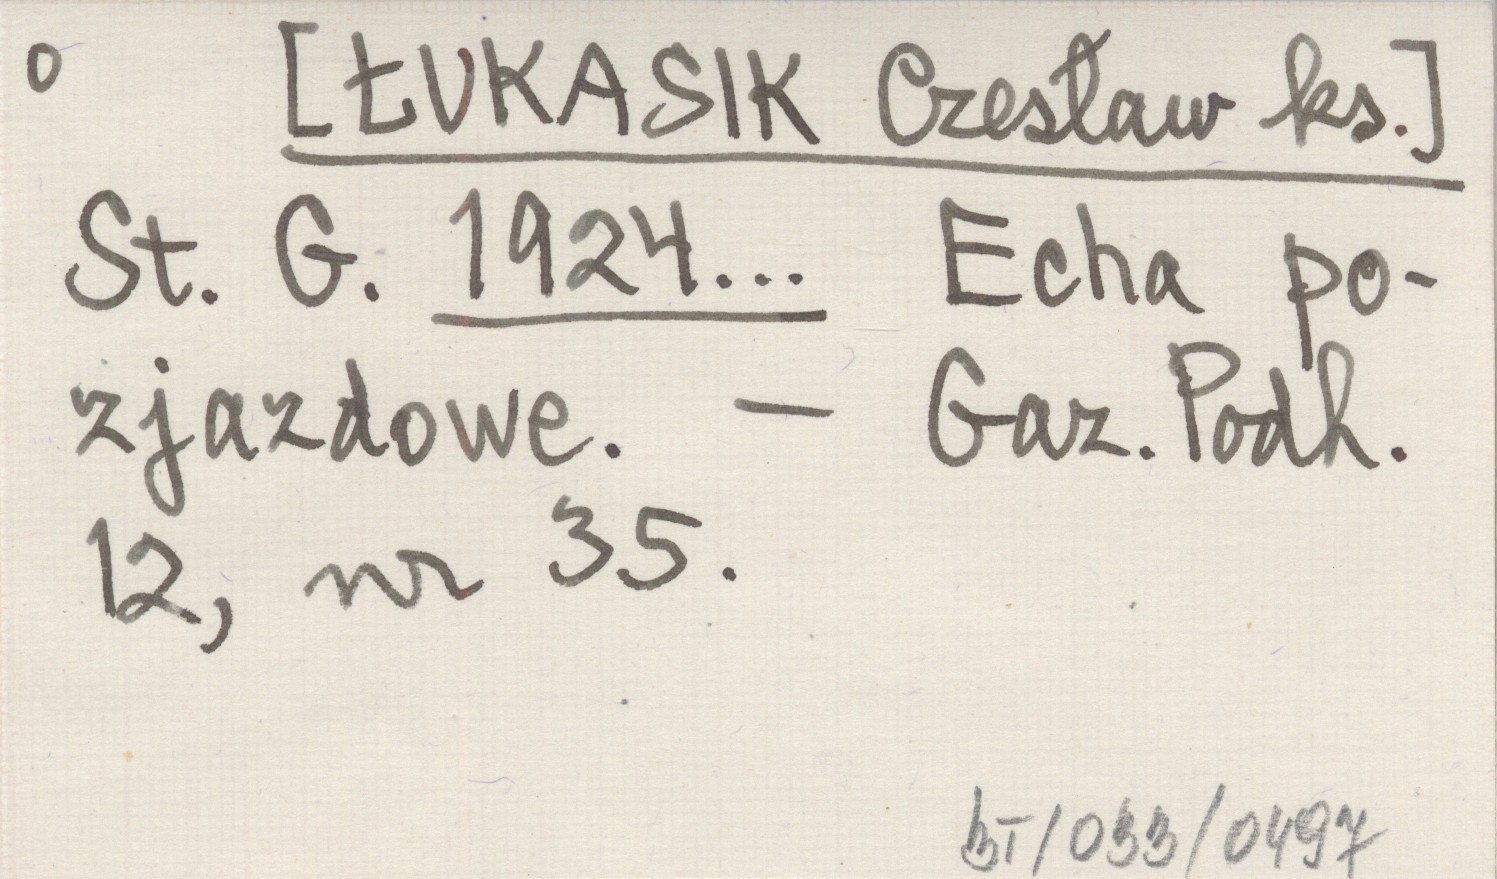 o [ŁUKASIK Czesław ks.]
St. G. 1924... Echa po-
zjazdowe. – Gaz. Podh.
12, nr 35.
bT/033/0497